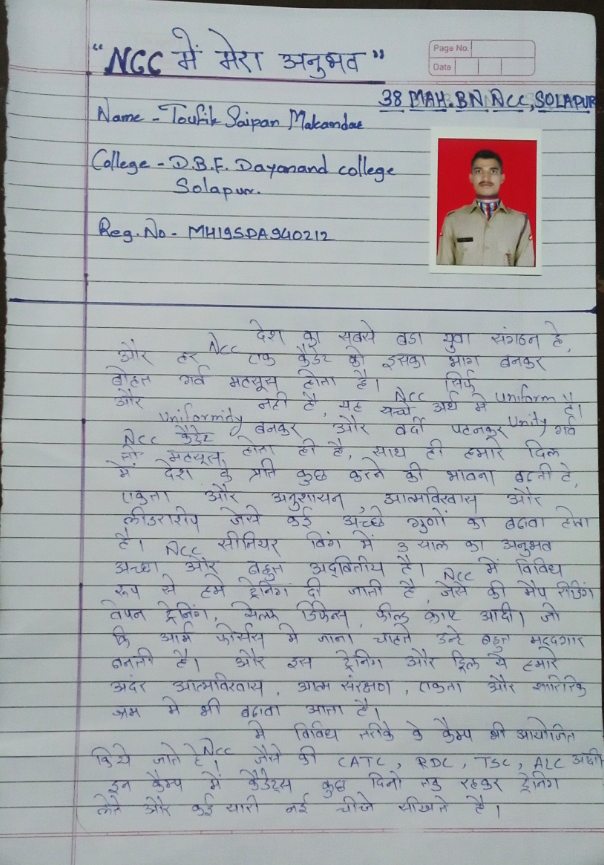 "NCC में मेरा अनुभव"
Page No.
Date
38 MAH.BN NCC, SOLAPUR
Name - Toufik Saipan Makandar
College - D.B.F. Dayanand college
Solapur.
Reg.No - MH19SDA940212
NCC देश का सबसे बडा युवा संगठन है,
और हर एक कैडेट को इसका भाग बनकर
बोहत गर्व महसूस होता है। NCC सिर्फ uniform
और नही है, यह सच्चे अर्थ मे Unity है।
Uniformity बनकर और वर्दी पहनकर गर्व
NCC कैडेट महसूस होता ही है, साथ ही हमारे दिल
में देश के प्रति कुछ करने की भावना बढती है,
एकता और अनुशासन, आत्मविश्वास और
लीडरशीप जैसे कई अच्छे गुणों का बढावा होता
है। NCC सीनियर विंग में 3 साल का अनुभव
अच्छा और बहुत अद्वितीय है। NCC में विविध
रूप से हमे ट्रेनिंग दी जाती है जैसे की मैप रीडिंग
वेपन ट्रेनिंग, सेल्फ डिफेन्स, फील्ड क्राफ्ट आदी। जो
कि आर्म फोर्सेस मे जाना चाहते उन्हे बहुत मददगार
बनती है। और इस ट्रेनिंग और ड्रिल से हमारे
अंदर आत्मविश्वास, आत्म संरक्षण, एकता और शारिरिक
श्रम मे भी बढावा आता है।
NCC मे विविध तरीके के कैम्प भी आयोजित
किये जाते है। जैसे की CATC, RDC, TSC, ALC आदी
इन कैम्प में कैडेट्स कुछ दिनो तक रहकर ट्रेनिंग
लेते और कई सारी नई चीजे सीखते है।